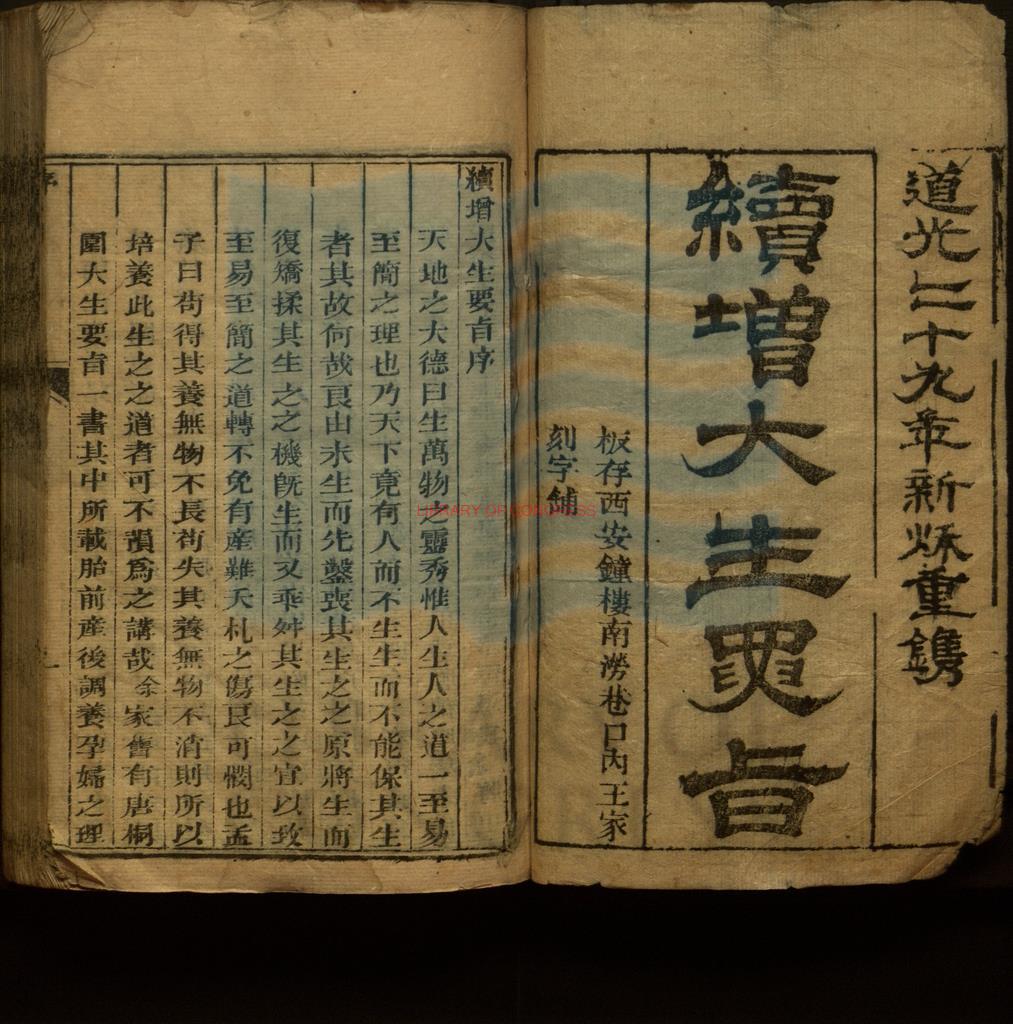 道光二十九年新秋重鐫
續增大生要旨
板存西安鐘樓南澇巷口內王家
刻字舖
續增大生要旨序
天地之大德曰生萬物之靈秀惟人生人之道一至易
至簡之理也乃天下竟有人而不生生而不能保其生
者其故何哉良由未生而先鑿喪其生之之原將生而
復矯揉其生之之機旣生而又乖舛其生之之宜以致
至易至簡之道轉不免有産難夭札之傷良可憫也孟
子曰苟得其養無物不長苟失其養無物不消則所以
培養此生之之道者可不韻爲之講哉余家舊有唐桐
園大生要旨一書其中所載胎前産後調養孕婦之理
序
一
LIBRARY OF CONGRESS